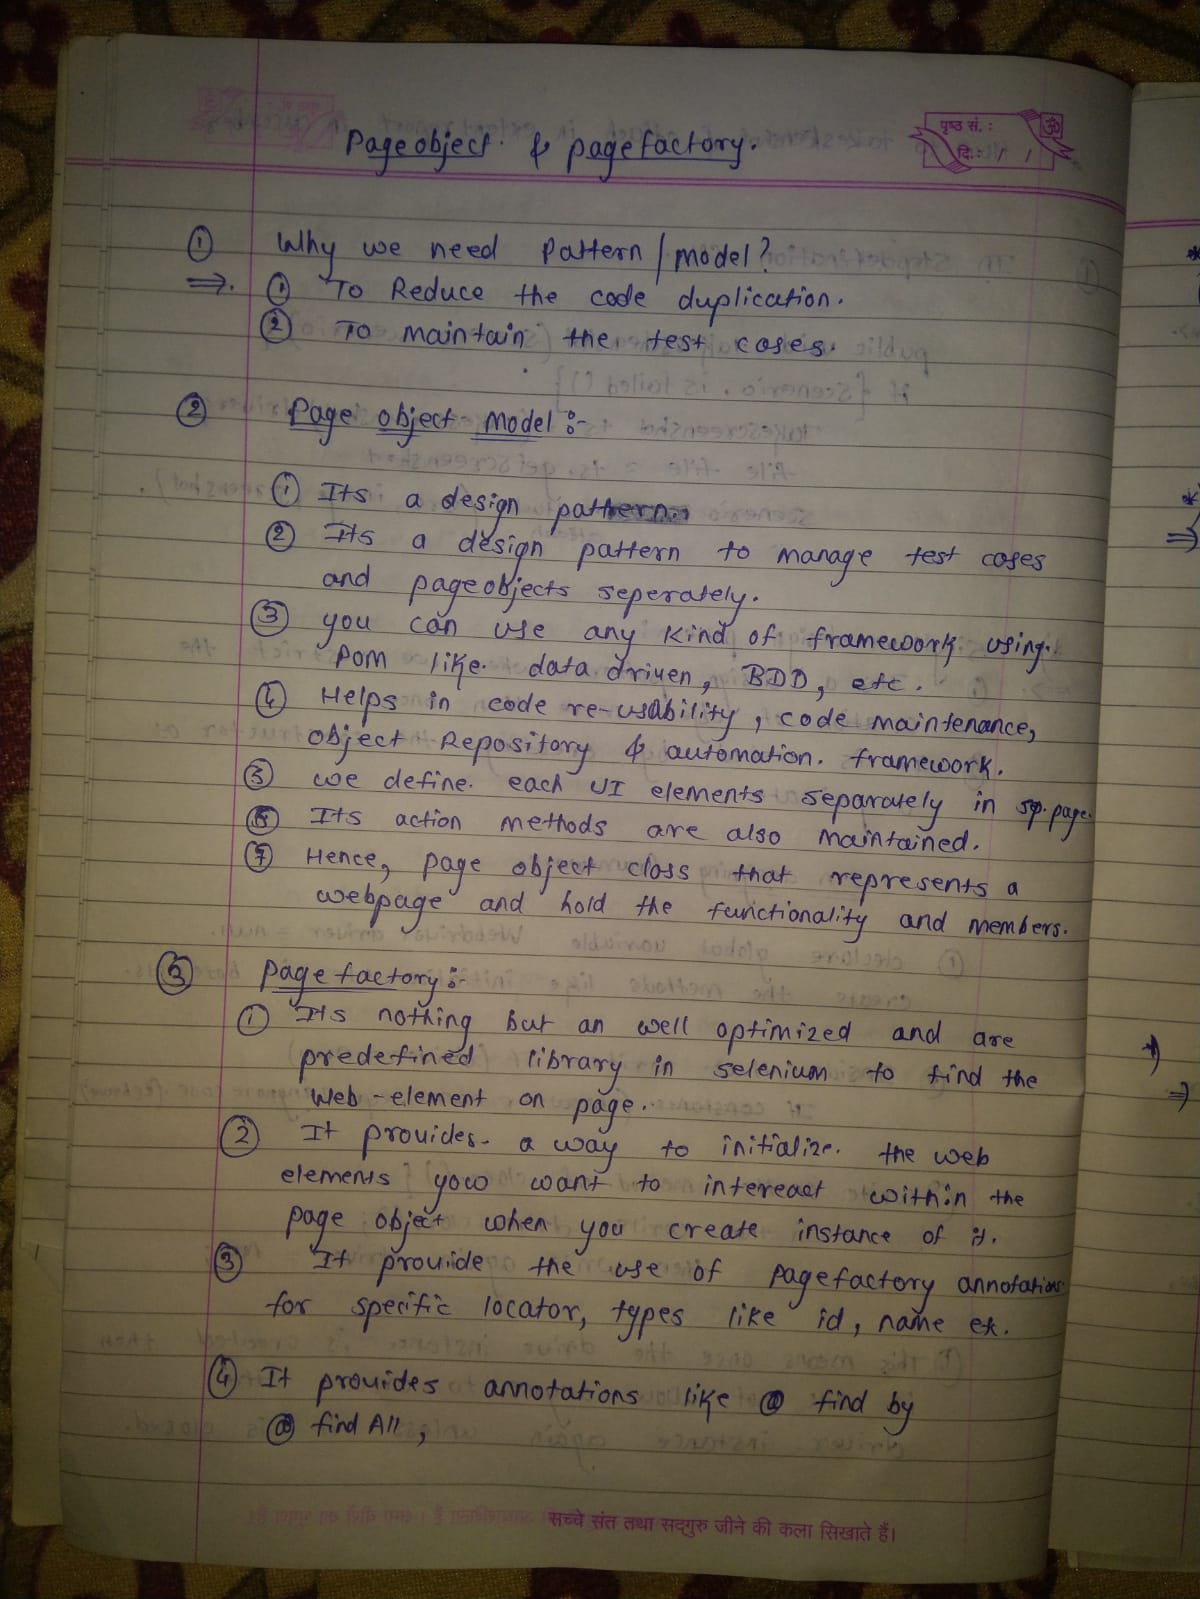 Page object & pagefactory.
पृष्ठ सं. :
ॐ
दि.: / /
① Why we need Pattern / model?
⇒. ① To Reduce the code duplication.
② To maintain the test cases.
② Page object Model :-
① Its a design pattern.
② Its a design pattern to manage test cases
and pageobjects seperately.
③ you can use any kind of framework using.
POM like. data driven, BDD, etc.
④ Helps in code re-usability, code maintenance,
object Repository & automation. framework.
⑤ we define. each UI elements separately in sp. page.
⑥ Its action methods are also maintained.
⑦ Hence, page object class that represents a
webpage and hold the functionality and members.
③ Page factory :-
① Its nothing but an well optimized and are
predefined library in selenium to find the
web-element on page.
② It provides. a way to initialize. the web
elements yow want to intereact within the
page object when you create instance of it.
③ It provide the use of pagefactory annotations
for specific locator, types like id, name etc.
④ It provides annotations like @ find by
@ find All,
सच्चे संत तथा सद्गुरु जीने की कला सिखाते हैं।